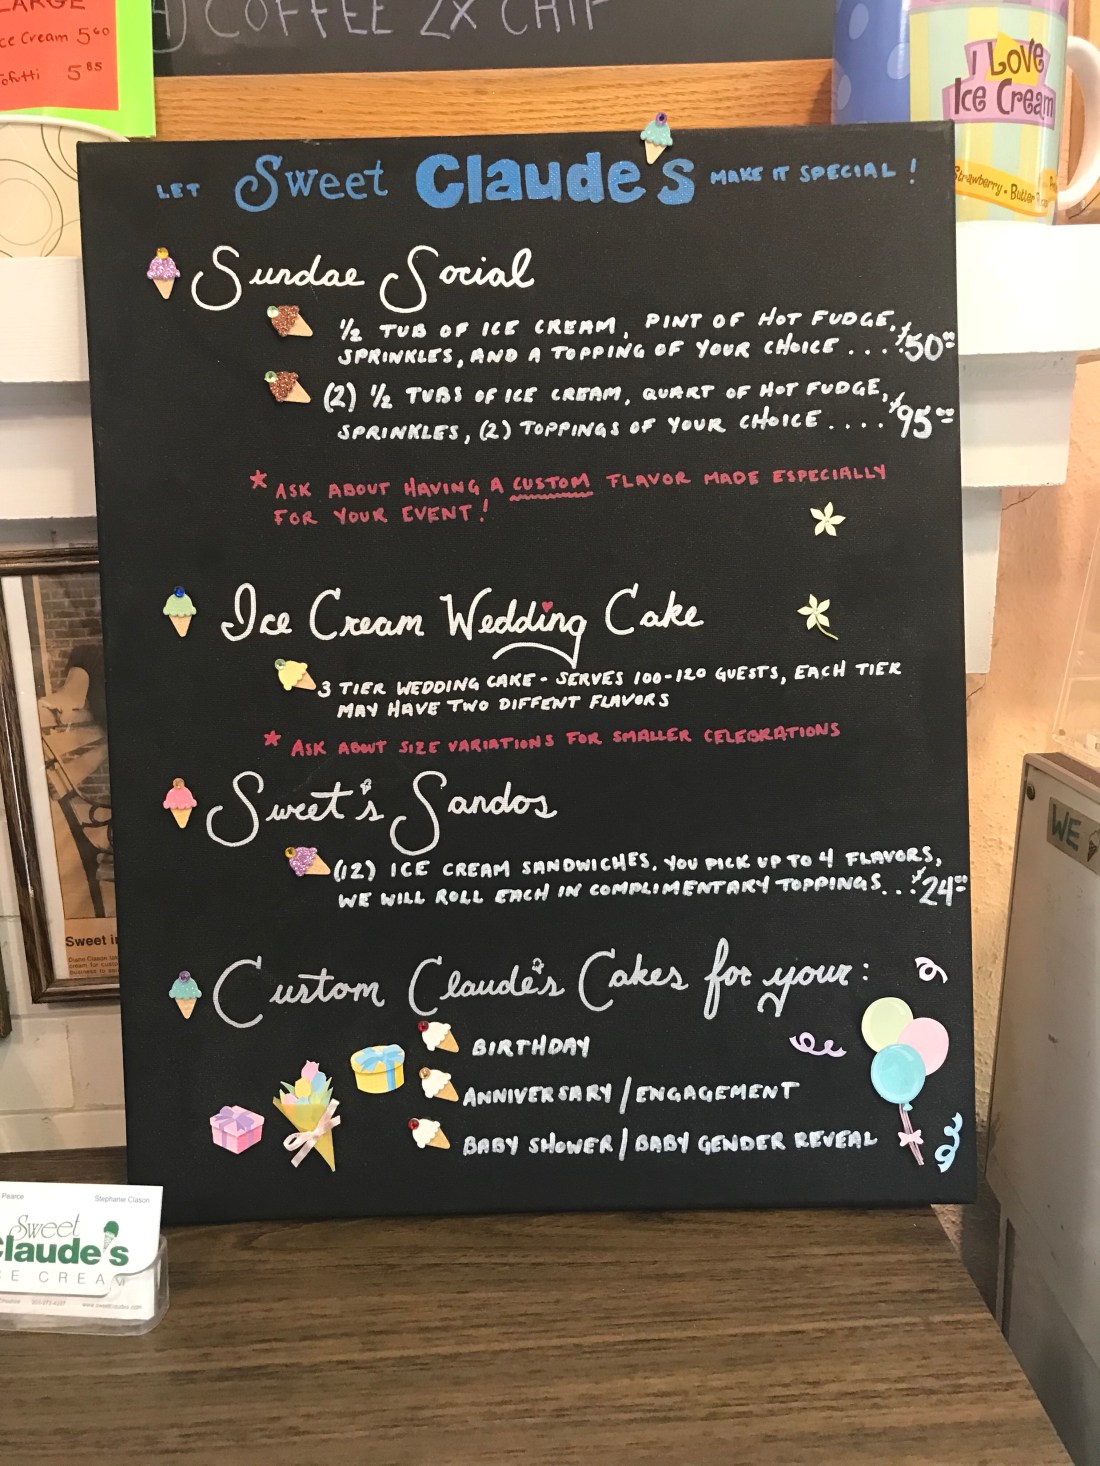 LARGE
Ice Cream 5⁶⁰
Tofutti 5⁸⁵
COFFEE 2X CHIP
I Love
Ice Cream
Strawberry • Butter
LET Sweet Claude's MAKE IT SPECIAL!
Sundae Social
½ TUB OF ICE CREAM, PINT OF HOT FUDGE,
SPRINKLES, AND A TOPPING OF YOUR CHOICE .... $50⁰⁰
(2) ½ TUBS OF ICE CREAM, QUART OF HOT FUDGE,
SPRINKLES, (2) TOPPINGS OF YOUR CHOICE .... $95⁰⁰
* ASK ABOUT HAVING A CUSTOM FLAVOR MADE ESPECIALLY
FOR YOUR EVENT!
Ice Cream Wedding Cake
3 TIER WEDDING CAKE - SERVES 100-120 GUESTS, EACH TIER
MAY HAVE TWO DIFFENT FLAVORS
* ASK ABOUT SIZE VARIATIONS FOR SMALLER CELEBRATIONS
Sweet's Sandos
(12) ICE CREAM SANDWICHES. YOU PICK UP TO 4 FLAVORS,
WE WILL ROLL EACH IN COMPLIMENTARY TOPPINGS...$24⁰⁰
Custom Claude's Cakes for your:
BIRTHDAY
ANNIVERSARY/ENGAGEMENT
BABY SHOWER/BABY GENDER REVEAL
WE
Sweet i
Pearce Stephanie Clason
Sweet
Claude's
ICE CREAM
www.sweetclaudes.com